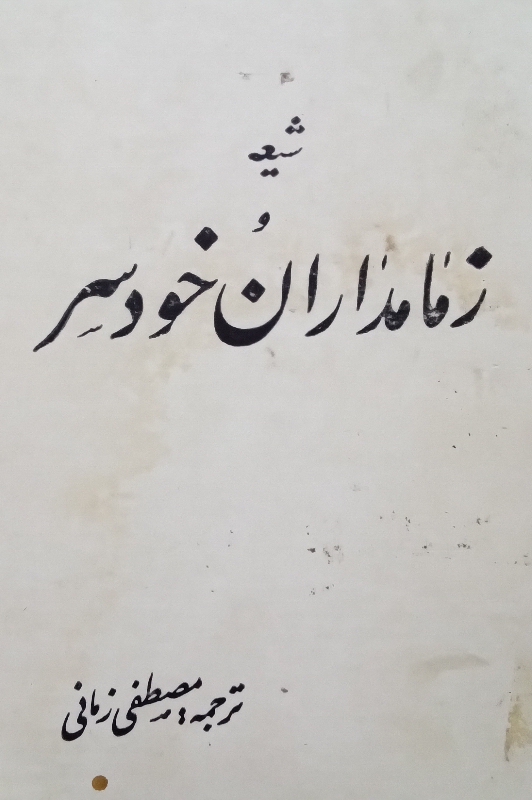 شیعه
و
زمامداران خودسر
ترجمه مصطفی زمانی